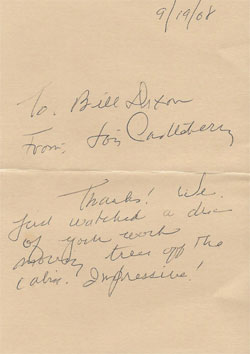 9/19/08
To: Bill Dixon
From: Lois Castleberry
Thanks! We
just watched a disc
of your work
moving trees off the
cabin. Impressive!